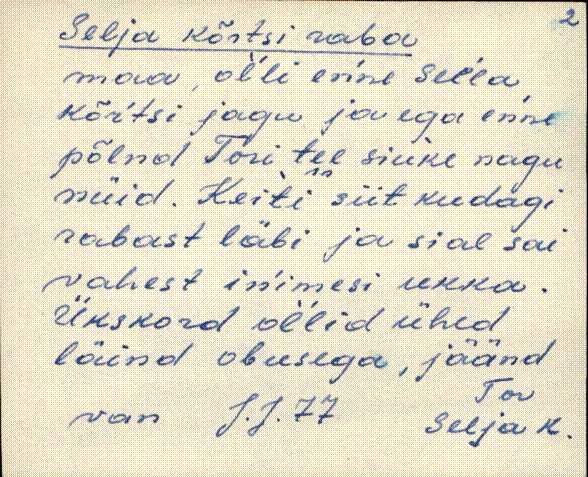 2
Selja kõrtsi raba
maa, ol'li en'ne Sel'l'a
kõrtsi jagu ja ega en'ne
põlnd Tori tee siuke nagu
nüid. Keiti siit kudagi
rabast läbi ja sial sai
vahest in'imesi ukka.
Ükskord ol'lid ühed
läind obusega, jäänd
van J.J. 77 Tor
Selja k.